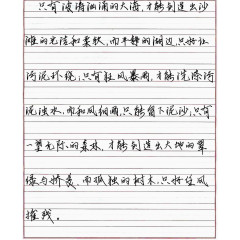 只有波涛汹涌的大海，才能创造出沙
滩的光洁和柔软，而平静的湖边，只好让
污泥环绕；只有狂风暴雨，才能洗涤污
泥浊水，而和风细雨，只能留下泥沙；只有
一望无际的森林，才能创造出大地的翠
绿与娇美，而孤独的树木，只好任风
摧残。